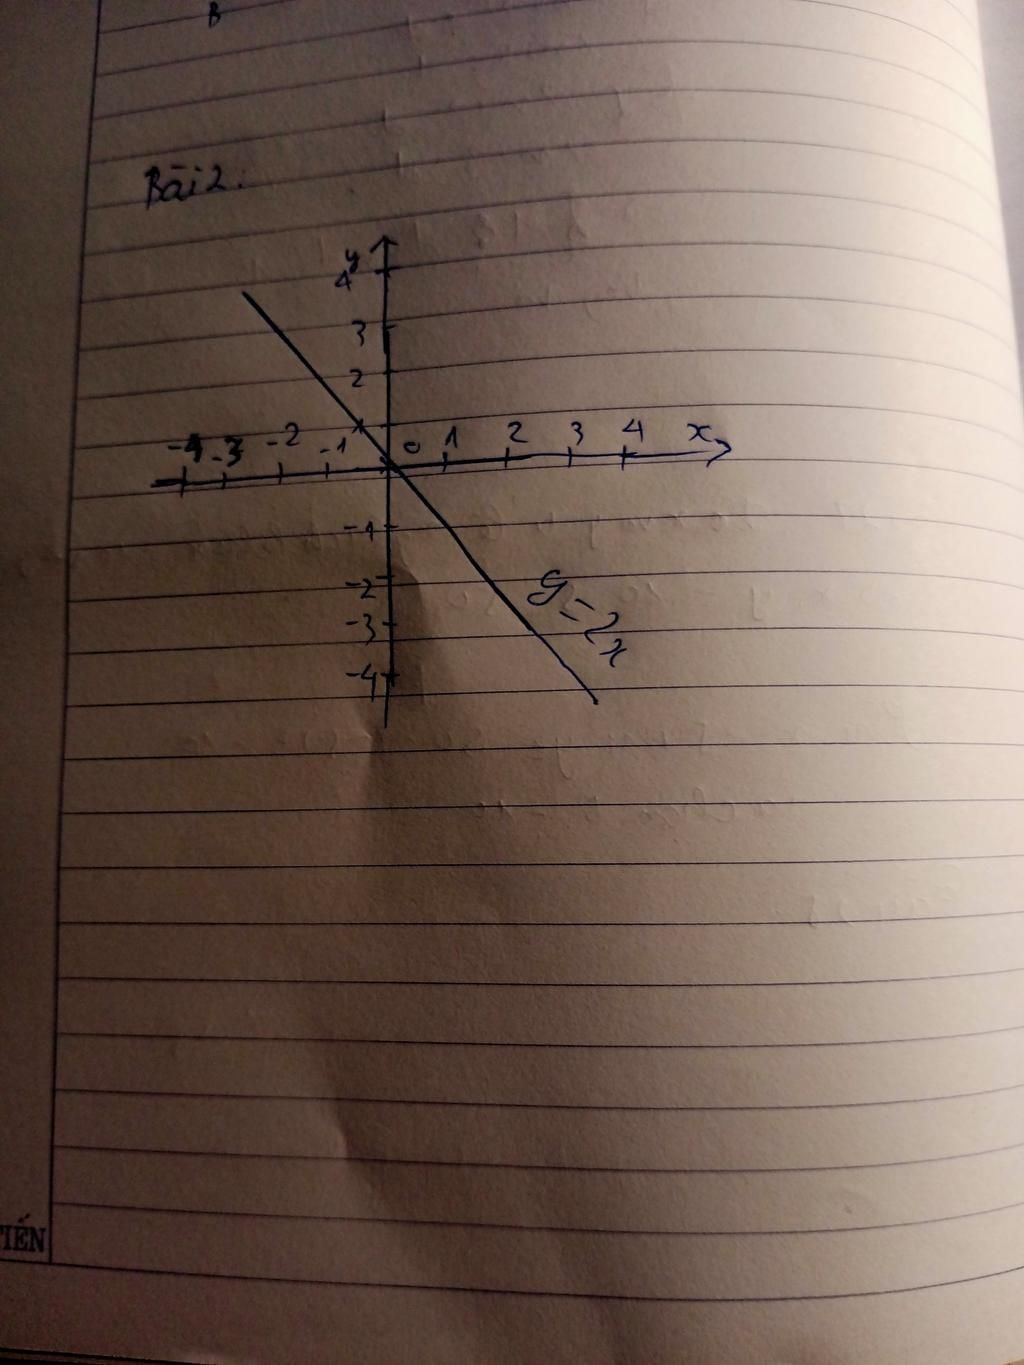 B
Bài 2:
y
4
3
2
1
-4 -3 -2 -1 0 1 2 3 4 x
-1
-2
-3
-4
y=2x
TIẾN